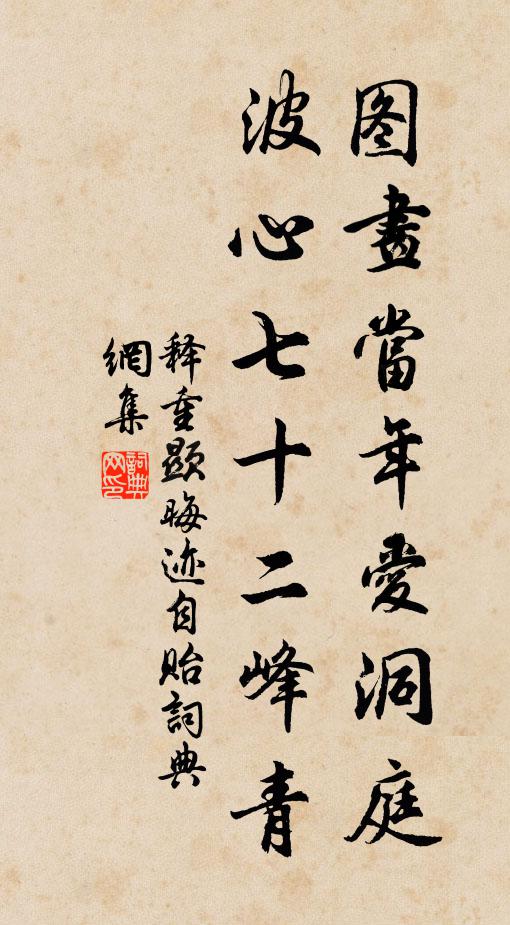 图畫當年愛洞庭
波心七十二峰青
释重顯晦迹自貽詞典
網集
詞典
网印